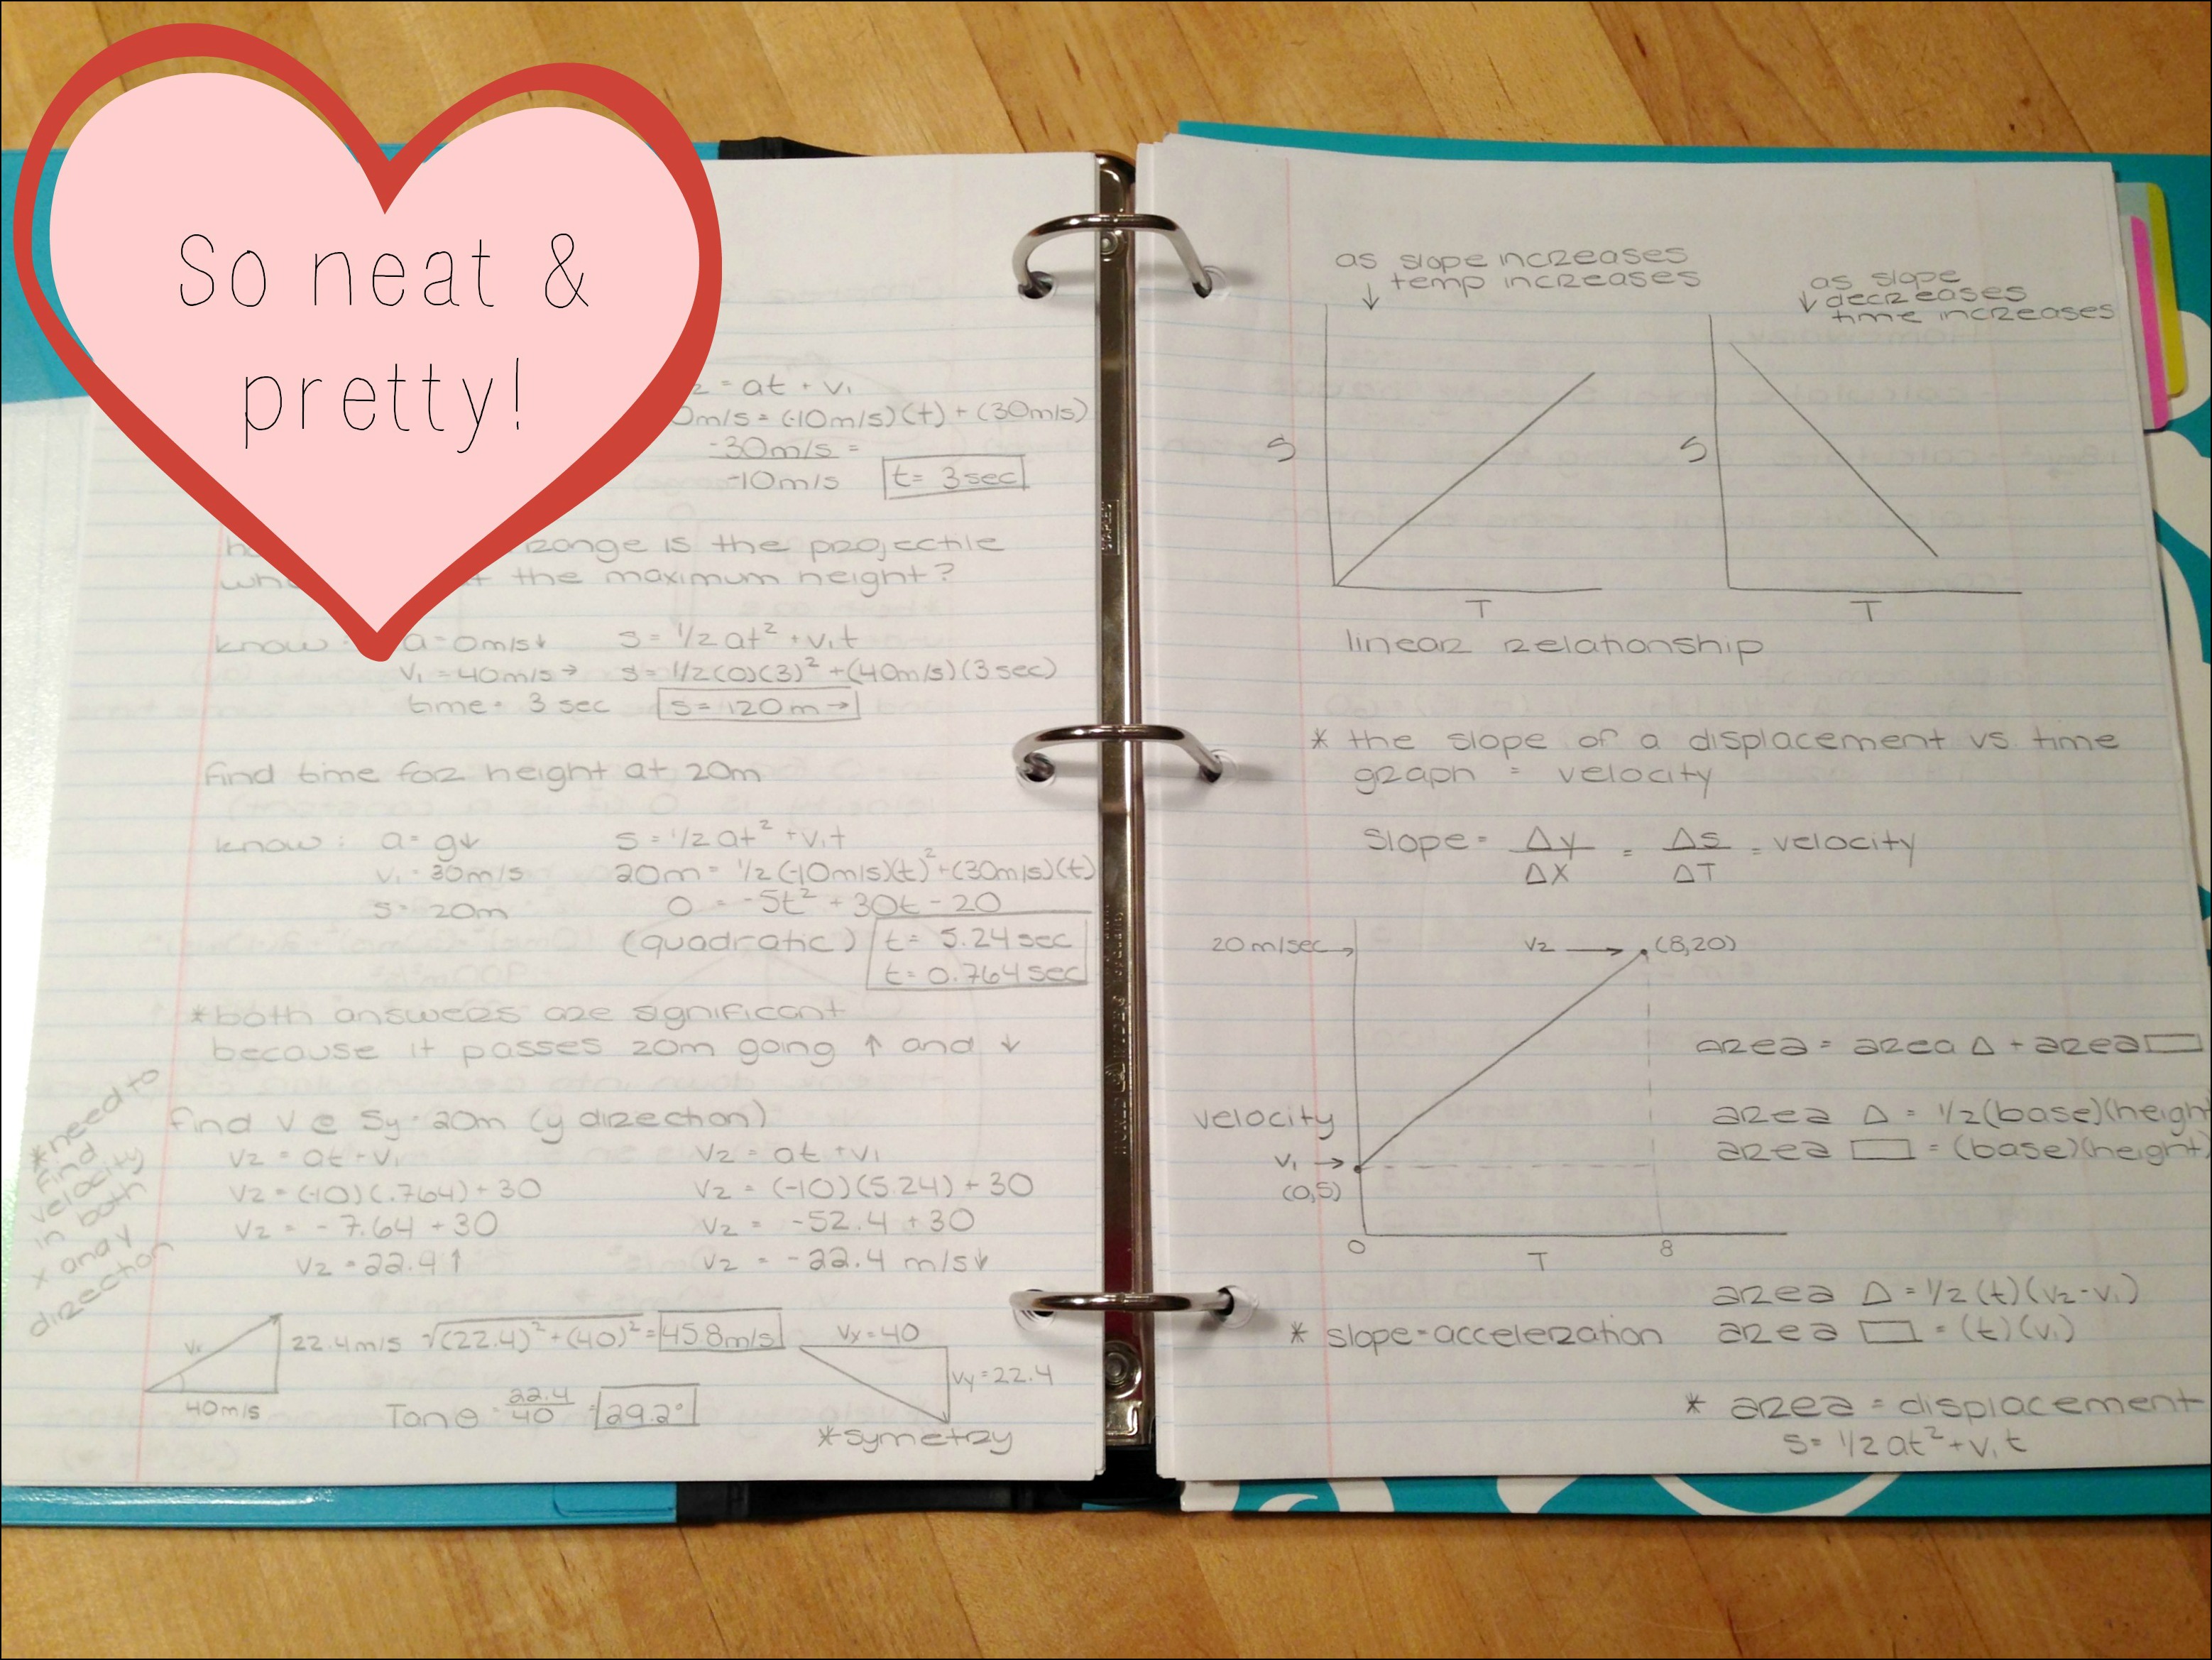 So neat &
pretty!
= at + v₁
0m/s = (-10m/s)(t) + (30m/s)
-30m/s =
-10m/s
t = 3sec
range is the projectile
the maximum height?
know: a = 0m/s↓ s = 1/2 at² + v₁t
v₁ = 40m/s → s = 1/2(0)(3)² + (40m/s)(3sec)
time = 3 sec s = 120m →
find time for height at 20m
know: a = g↓ s = 1/2 at² + v₁t
v₁ = 30m/s 20m = 1/2(-10m/s)(t)² + (30m/s)(t)
s = 20m 0 = -5t² + 30t - 20
(quadratic) t = 5.24sec
t = 0.764sec
*both answers are significant
because it passes 20m going ↑ and ↓
*need to
find
velocity
in both
x and y
direction
find v @ Sy = 20m (y direction)
v₂ = at + v₁ v₂ = at + v₁
v₂ = (-10)(.764) + 30 v₂ = (-10)(5.24) + 30
v₂ = -7.64 + 30 v₂ = -52.4 + 30
v₂ = 22.4↑ v₂ = -22.4 m/s↓
22.4m/s √(22.4)² + (40)² = 45.8m/s Vx = 40
40m/s
Tanθ = 22.4/40 = 29.2° Vy = 22.4
*symetry
as slope increases
temp increases
↓
as slope
↓ decreases
time increases
S S
T T
linear relationship
* the slope of a displacement vs time
graph = velocity
slope = Δy/ΔX = Δs/ΔT = velocity
20m/sec v₂ → (8,20)
area = area Δ + area ▭
velocity
area Δ = 1/2(base)(heigh
area ▭ = (base)(height)
v₁ →
(0,5)
0 T 8
area Δ = 1/2(t)(v₂-v₁)
* slope = acceleration area ▭ = (t)(v₁)
* area = displacement
s = 1/2 at² + v₁t